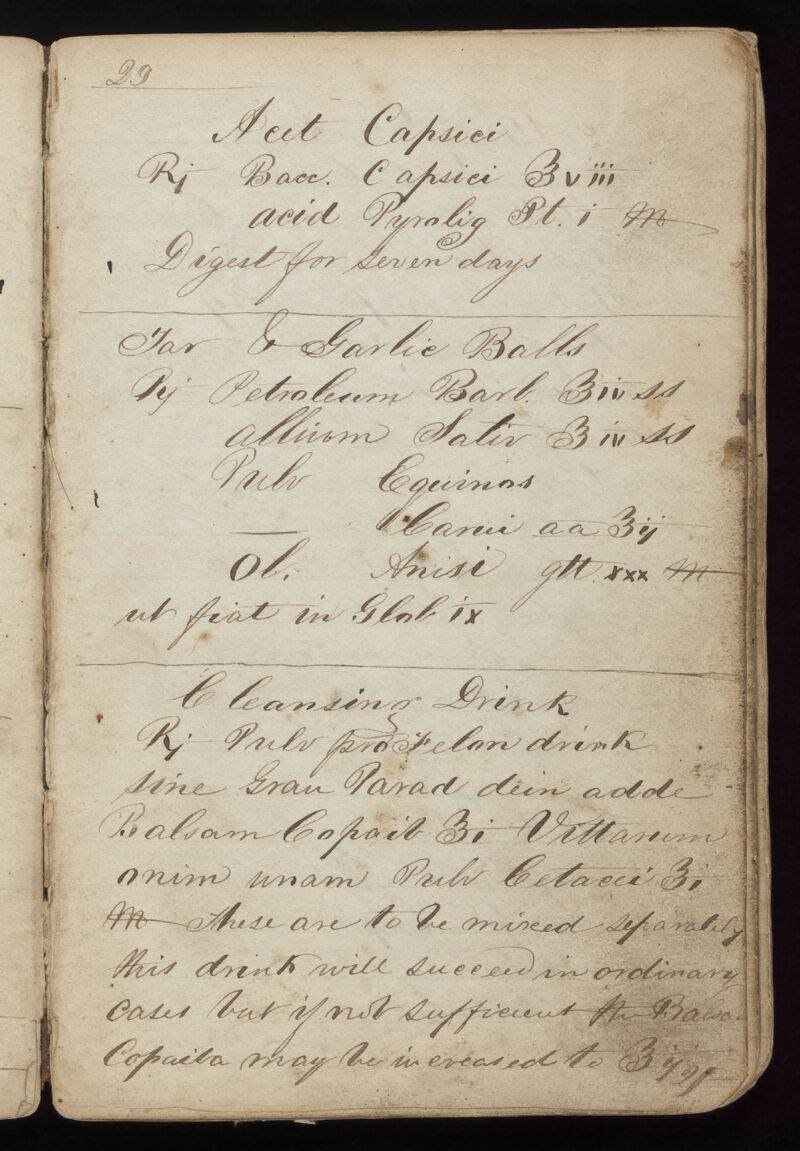 29
Acet Capsici
Rj Bacc. Capsici ʒviii
acid Pyrolig Pt. i M
Digest for seven days
Tar & Garlic Balls
Rj Petroleum Barb. ʒiv ss
allium Sativ ʒiv ss
Pulv Equinos
— Carui aa ʒij
Ol. Anisi gtt. xxx M
ut fiat in Glob ix
Cleansing Drink
Rj Pulv pro Felon drink
sine Gran Parad dein adde
Balsam Copaib ʒi Vittarum
onim unam Pulv Cetacei ʒi
M These are to be mixed separately
this drink will succeed in ordinary
cases but if not sufficient the Balsam
Copaiba may be increased to ʒij